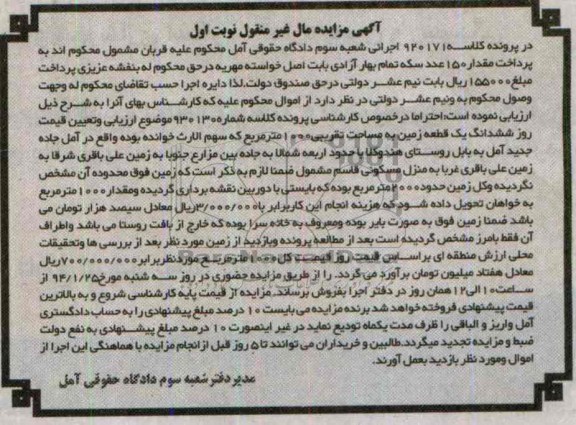 آگهی مزایده مال غیر منقول نوبت اول
در پرونده کلاسه ۹۲۰۱۷۱ اجرائی شعبه سوم دادگاه حقوقی آمل محکوم علیه قربان مشمول محکوم اند به
پرداخت مقدار ۱۵۰ عدد سکه تمام بهار آزادی بابت اصل خواسته مهریه درحق محکوم له بنفشه عزیزی پرداخت
مبلغ ۱۵۵۰۰۰ ریال بابت نیم عشر دولتی درحق صندوق دولت. لذا دایره اجرا حسب تقاضای محکوم له وجهت
وصول محکوم به ونیم عشر دولتی در نظر دارد از اموال محکوم علیه که کارشناس بهای آنرا به شرح ذیل
ارزیابی نموده است: احتراما درخصوص کارشناسی پرونده کلاسه شماره ۹۳۰۱۳۰ موضوع ارزیابی وتعیین قیمت
روز ششدانگ یک قطعه زمین به مساحت تقریبی ۱۰۰۰ مترمربع که سهم الارث خوانده بوده واقع در آمل جاده
جدید آمل به بابل روستای هندوکلا با حدود اربعه شمالا به جاده بین مزارع جنوبا به زمین علی باقری شرقا به
زمین علی باقری غربا به منزل مسکونی قاسم مشمول ضمنا لازم به ذکر است که زمین فوق محدوده آن مشخص
نگردیده وکل زمین حدود ۲۰۰۰ مترمربع بوده که بایستی با دوربین نقشه برداری گردیده ومقدار ۱۰۰۰ مترمربع
به خواهان تحویل داده شود که هزینه انجام این کاربرابر با ۳/۰۰۰/۰۰۰ ریال معادل سیصد هزار تومان می
باشد ضمنا زمین فوق به صورت بایر بوده ومعروف به خانه سرا بوده که خارج از بافت روستا می باشد واطراف
آن فقط بامرز مشخص گردیده است بعد از مطالعه پرونده وبازدید از زمین مورد نظر بعد از بررسی ها وتحقیقات
محلی ارزش منطقه ای براساس قیمت روز قیمت کل ۱۰۰۰ مترمربع مورد نظر برابر ۷۰۰/۰۰۰/۰۰۰ ریال
معادل هفتاد میلیون تومان برآورد می گردد. را از طریق مزایده حضوری در روز سه شنبه مورخ ۹۴/۱/۲۵ از
ساعت ۱۰ الی ۱۲ همان روز در دفتر اجرا بفروش برساند. مزایده از قیمت پایه کارشناسی شروع و به بالاترین
قیمت پیشنهادی فروخته خواهد شد برنده مزایده می بایست ۱۰ درصد مبلغ پیشنهادی را به حساب دادگستری
آمل واریز و الباقی را ظرف مدت یکماه تودیع نماید در غیر اینصورت ۱۰ درصد مبلغ پیشنهادی به نفع دولت
ضبط و مزایده تجدید میگردد. طالبین و خریداران می توانند تا ۵ روز قبل از انجام مزایده با هماهنگی این اجرا از
اموال ومورد نظر بازدید بعمل آورند.
مدیر دفتر شعبه سوم دادگاه حقوقی آمل